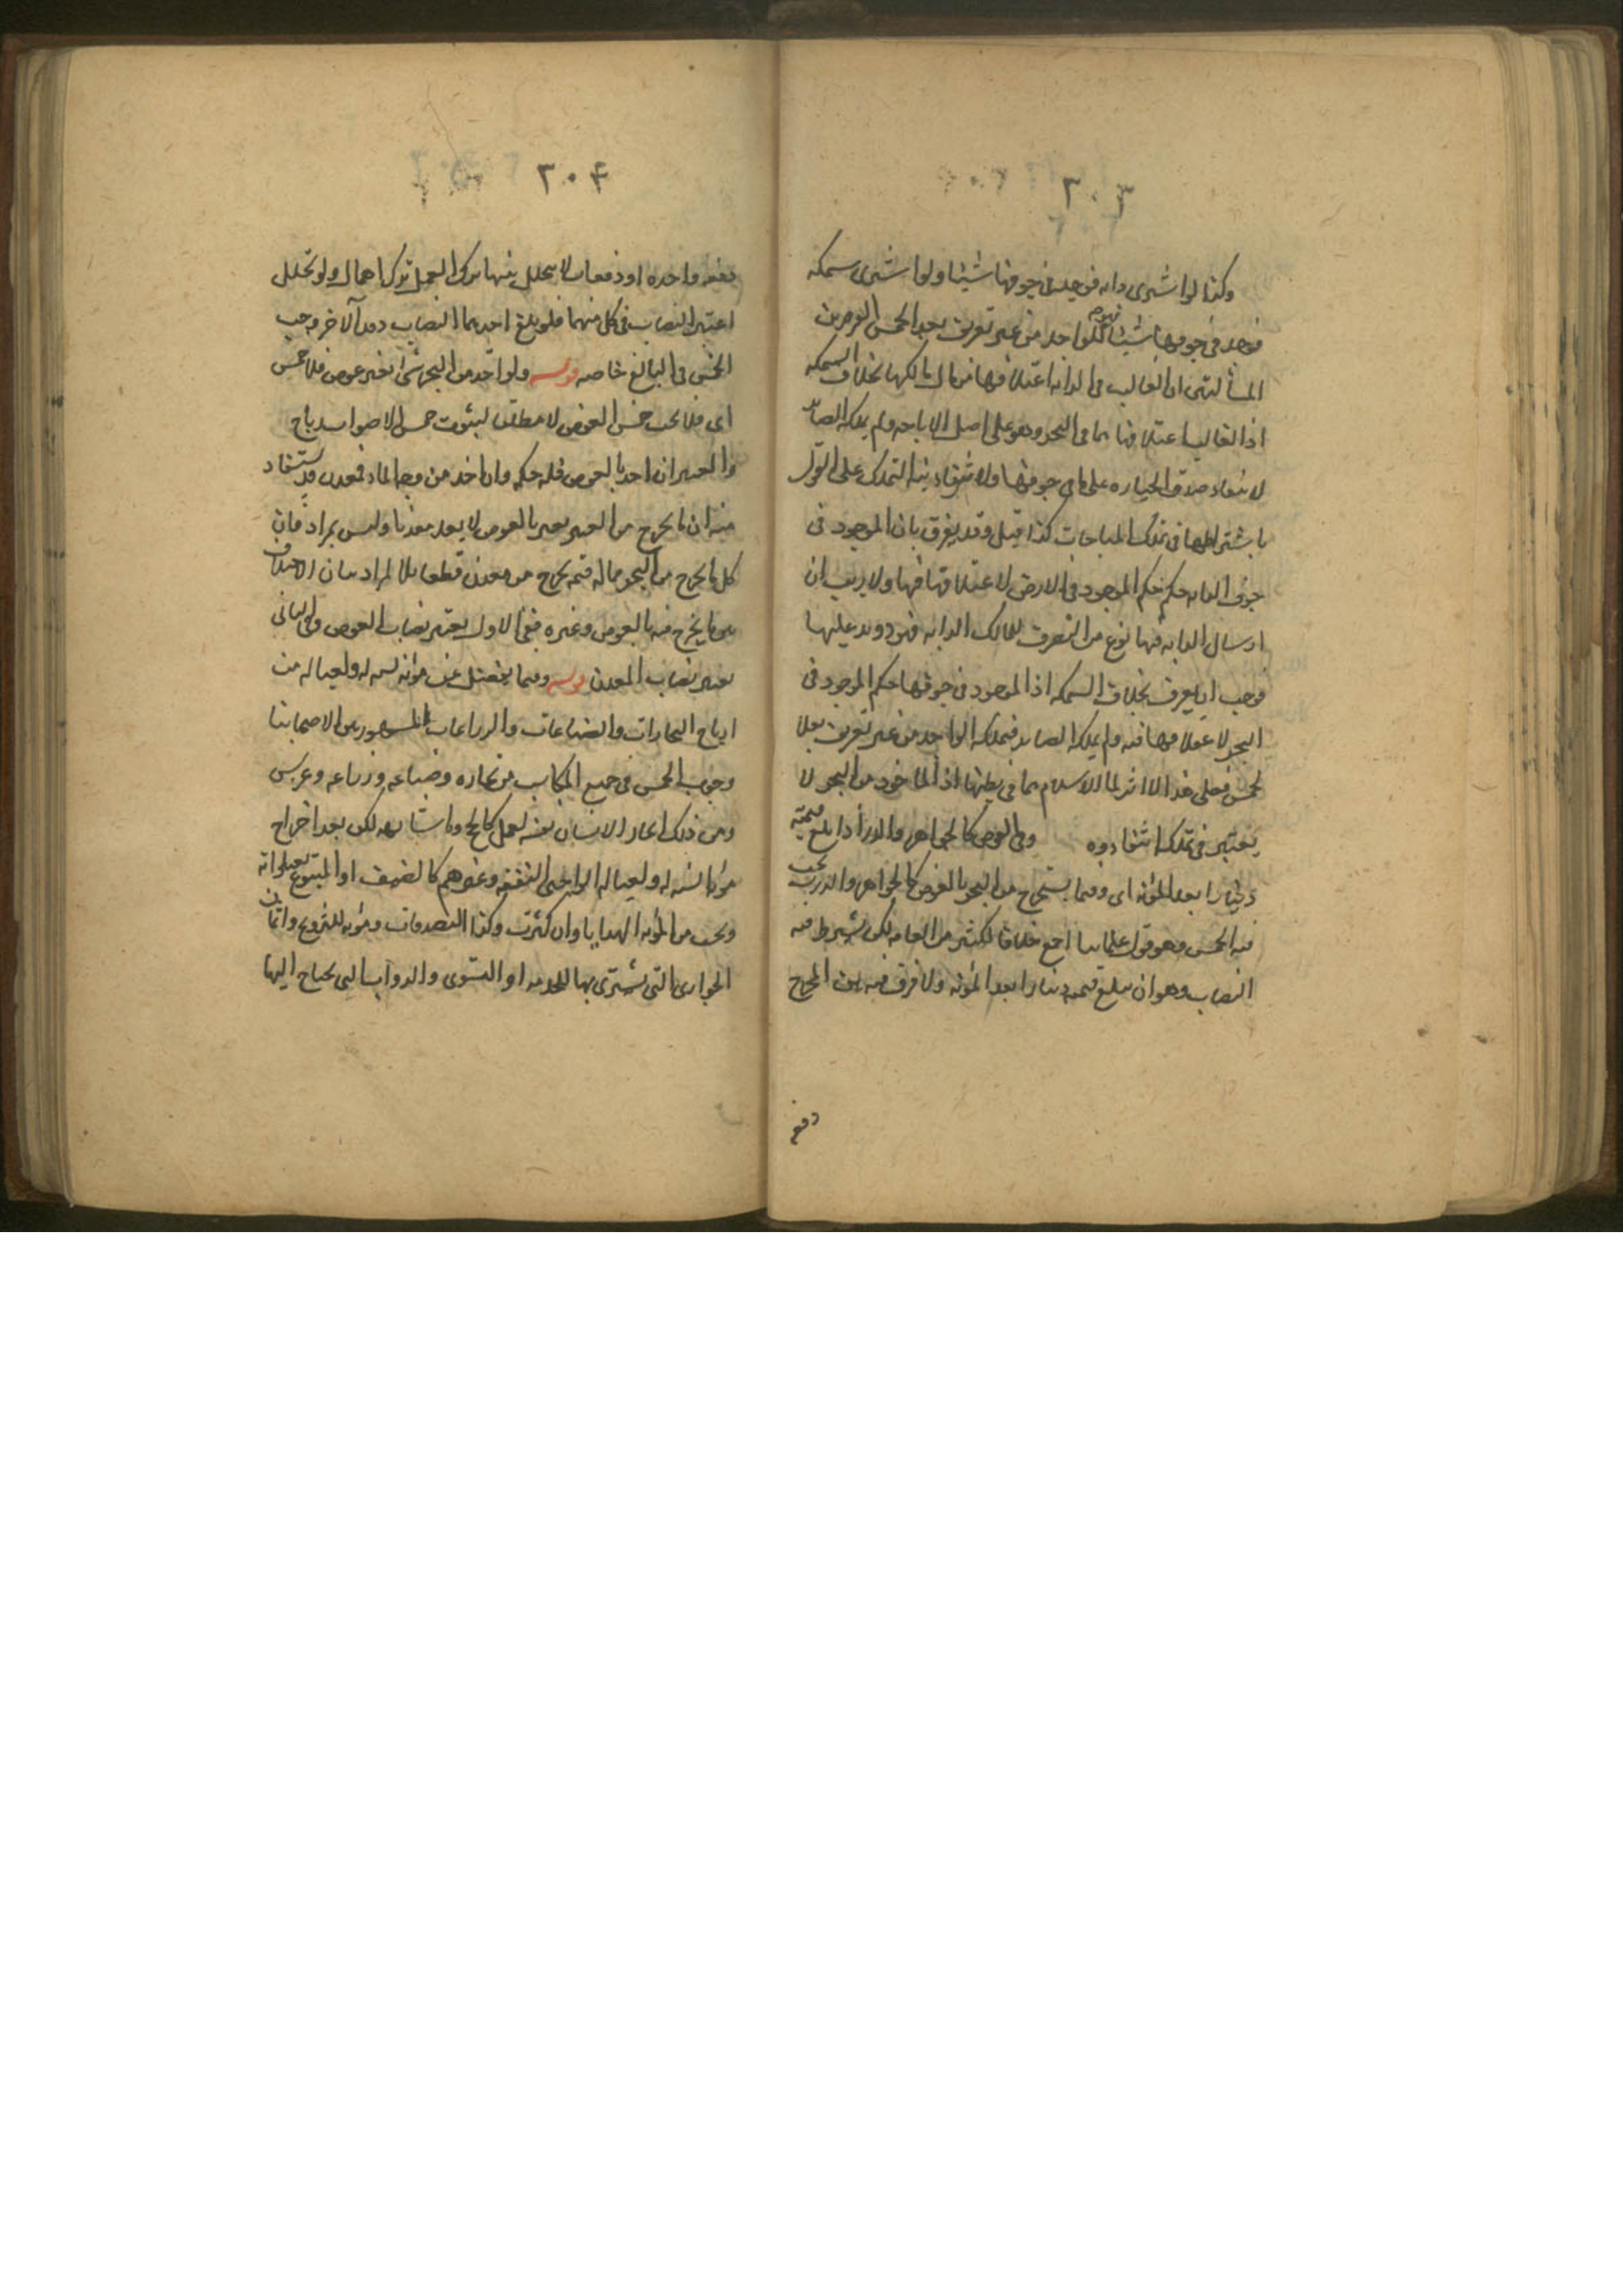 ٢٠٣
وكذا لو اشترى دابه فوجد في جوفها شيئا ولو اشترى سمكه
فوجد في جوفها شيئا فهو للواجد من غير تعريف بعد الخمس والفرق بين
المسألتين ان الغالب في الدابه اعتلافها من مال مالكها بخلاف السمكه
اذ الغالب اعتلافها مما في البحر وهو على اصل الاباحه ولم يملكه الصائد
لانتفاء صدق الحيازه على ما في جوفها ولانتفاء نية التملك على القول
باشتراطها في تملك المباحات كذا قيل وقد يفرق بان الموجود في
جوف الدابه حكمه حكم الموجود في الارض لاعتلافها فيها ولا ريب ان
ارسال الدابه فيها نوع من التصرف لمالك الدابه فهو ذو يد عليها
فوجب ان يعرف بخلاف السمكه اذ الموجود في جوفها حكم الموجود في
البحر لاعتلافها فيه ولم يملكه الصايد فيملكه الواجد من غير تعريف بعد
الخمس فعلى هذا لا اثر للاسلام مما في بطنها اذ الماخوذ من البحر لا
يعتبر في تملكه انتفاؤه وفي الغوص كالجواهر والدرر اذا بلغ قيمته
دينارا بعد المؤنه اى وفيما يستخرج من البحر بالغوص كالجواهر والدرر يجب
فيه الخمس وهو قول علمائنا اجمع خلافا لكثير من العامه لكن يشترط فيه
النصاب وهو ان يبلغ قيمته دينارا بعد المؤنه ولا فرق فيه بين المخرج
دفعه
٢٠۴
دفعه واحده او دفعات لا يتخلل بينها ترك العمل ترك اهمال ولو تخلل
اعتبر النصاب في كل منهما فلو بلغ احدهما النصاب دون الآخر وجب
الخمس في البالغ خاصه قوله ولو اخذ من البحر شئ بغير غوص فلا خمس
اى فلا يجب خمس الغوص لا مطلقا لثبوت خمس الارباح
والعنبر ان اخذ بالغوص فله حكمه وان اخذ من وجه الماء فمعدن قد يستفاد
منه ان ما يخرج من العنبر بغير الغوص لا يعد معدنا وليس بمراد فان
كل ما يخرج من البحر مما له قيمه يخرج من معدن قطعا بل المراد بيان الاختلاف
بين ما يخرج منه بالغوص وغيره ففي الاول يعتبر نصاب الغوص وفي الثاني
يعتبر نصاب المعدن قوله وفيما يفضل عن مؤنه سنه له ولعياله من
ارباح التجارات والصناعات والزراعات المشهور بين الاصحابنا
وجوب الخمس في جميع المكاسب من تجاره وصناعه وزراعه وغرس
ومن ذلك ايجار الانسان نفسه لعمل كالحج وما شابهه لكن بعد اخراج
مؤنة السنه له ولعياله الواجبى النفقه وغيرهم كالضيف او المتبرع بعيلولته
ويجب من المؤنه الهدايا وان كثرت وكذا الصدقات ومؤنه التزويج واثمان
الجوارى التى يشترى بها للخدمه او التسرى والدواب التى يحتاج اليها